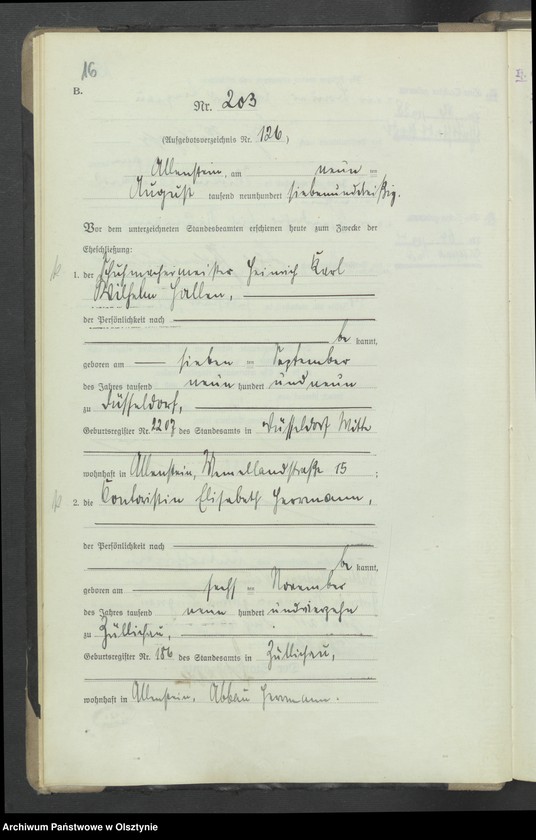 16
B.
Nr. 203
(Aufgebotsverzeichnis Nr. 126)
Allenstein, am neun ten
August tausend neunhundert siebenunddreißig.
Vor dem unterzeichneten Standesbeamten erschienen heute zum Zwecke der
Eheschließung:
1. der Schuhmachermeister Heinrich Karl
Wilhelm Hallen,
der Persönlichkeit nach
be kannt,
geboren am sieben ten September
des Jahres tausend neun hundert undneun
zu Düsseldorf,
Geburtsregister Nr. 2207 des Standesamts in Düsseldorf Mitte
wohnhaft in Allenstein, Memellandstraße 15 ;
2. die Kontoristin Elisabeth Herrmann,
der Persönlichkeit nach
be kannt,
geboren am sechs ten November
des Jahres tausend neun hundert undvierzehn
zu Züllichau,
Geburtsregister Nr. 186 des Standesamts in Züllichau,
wohnhaft in Allenstein, Abbau Herrmann.
Archiwum Państwowe w Olsztynie